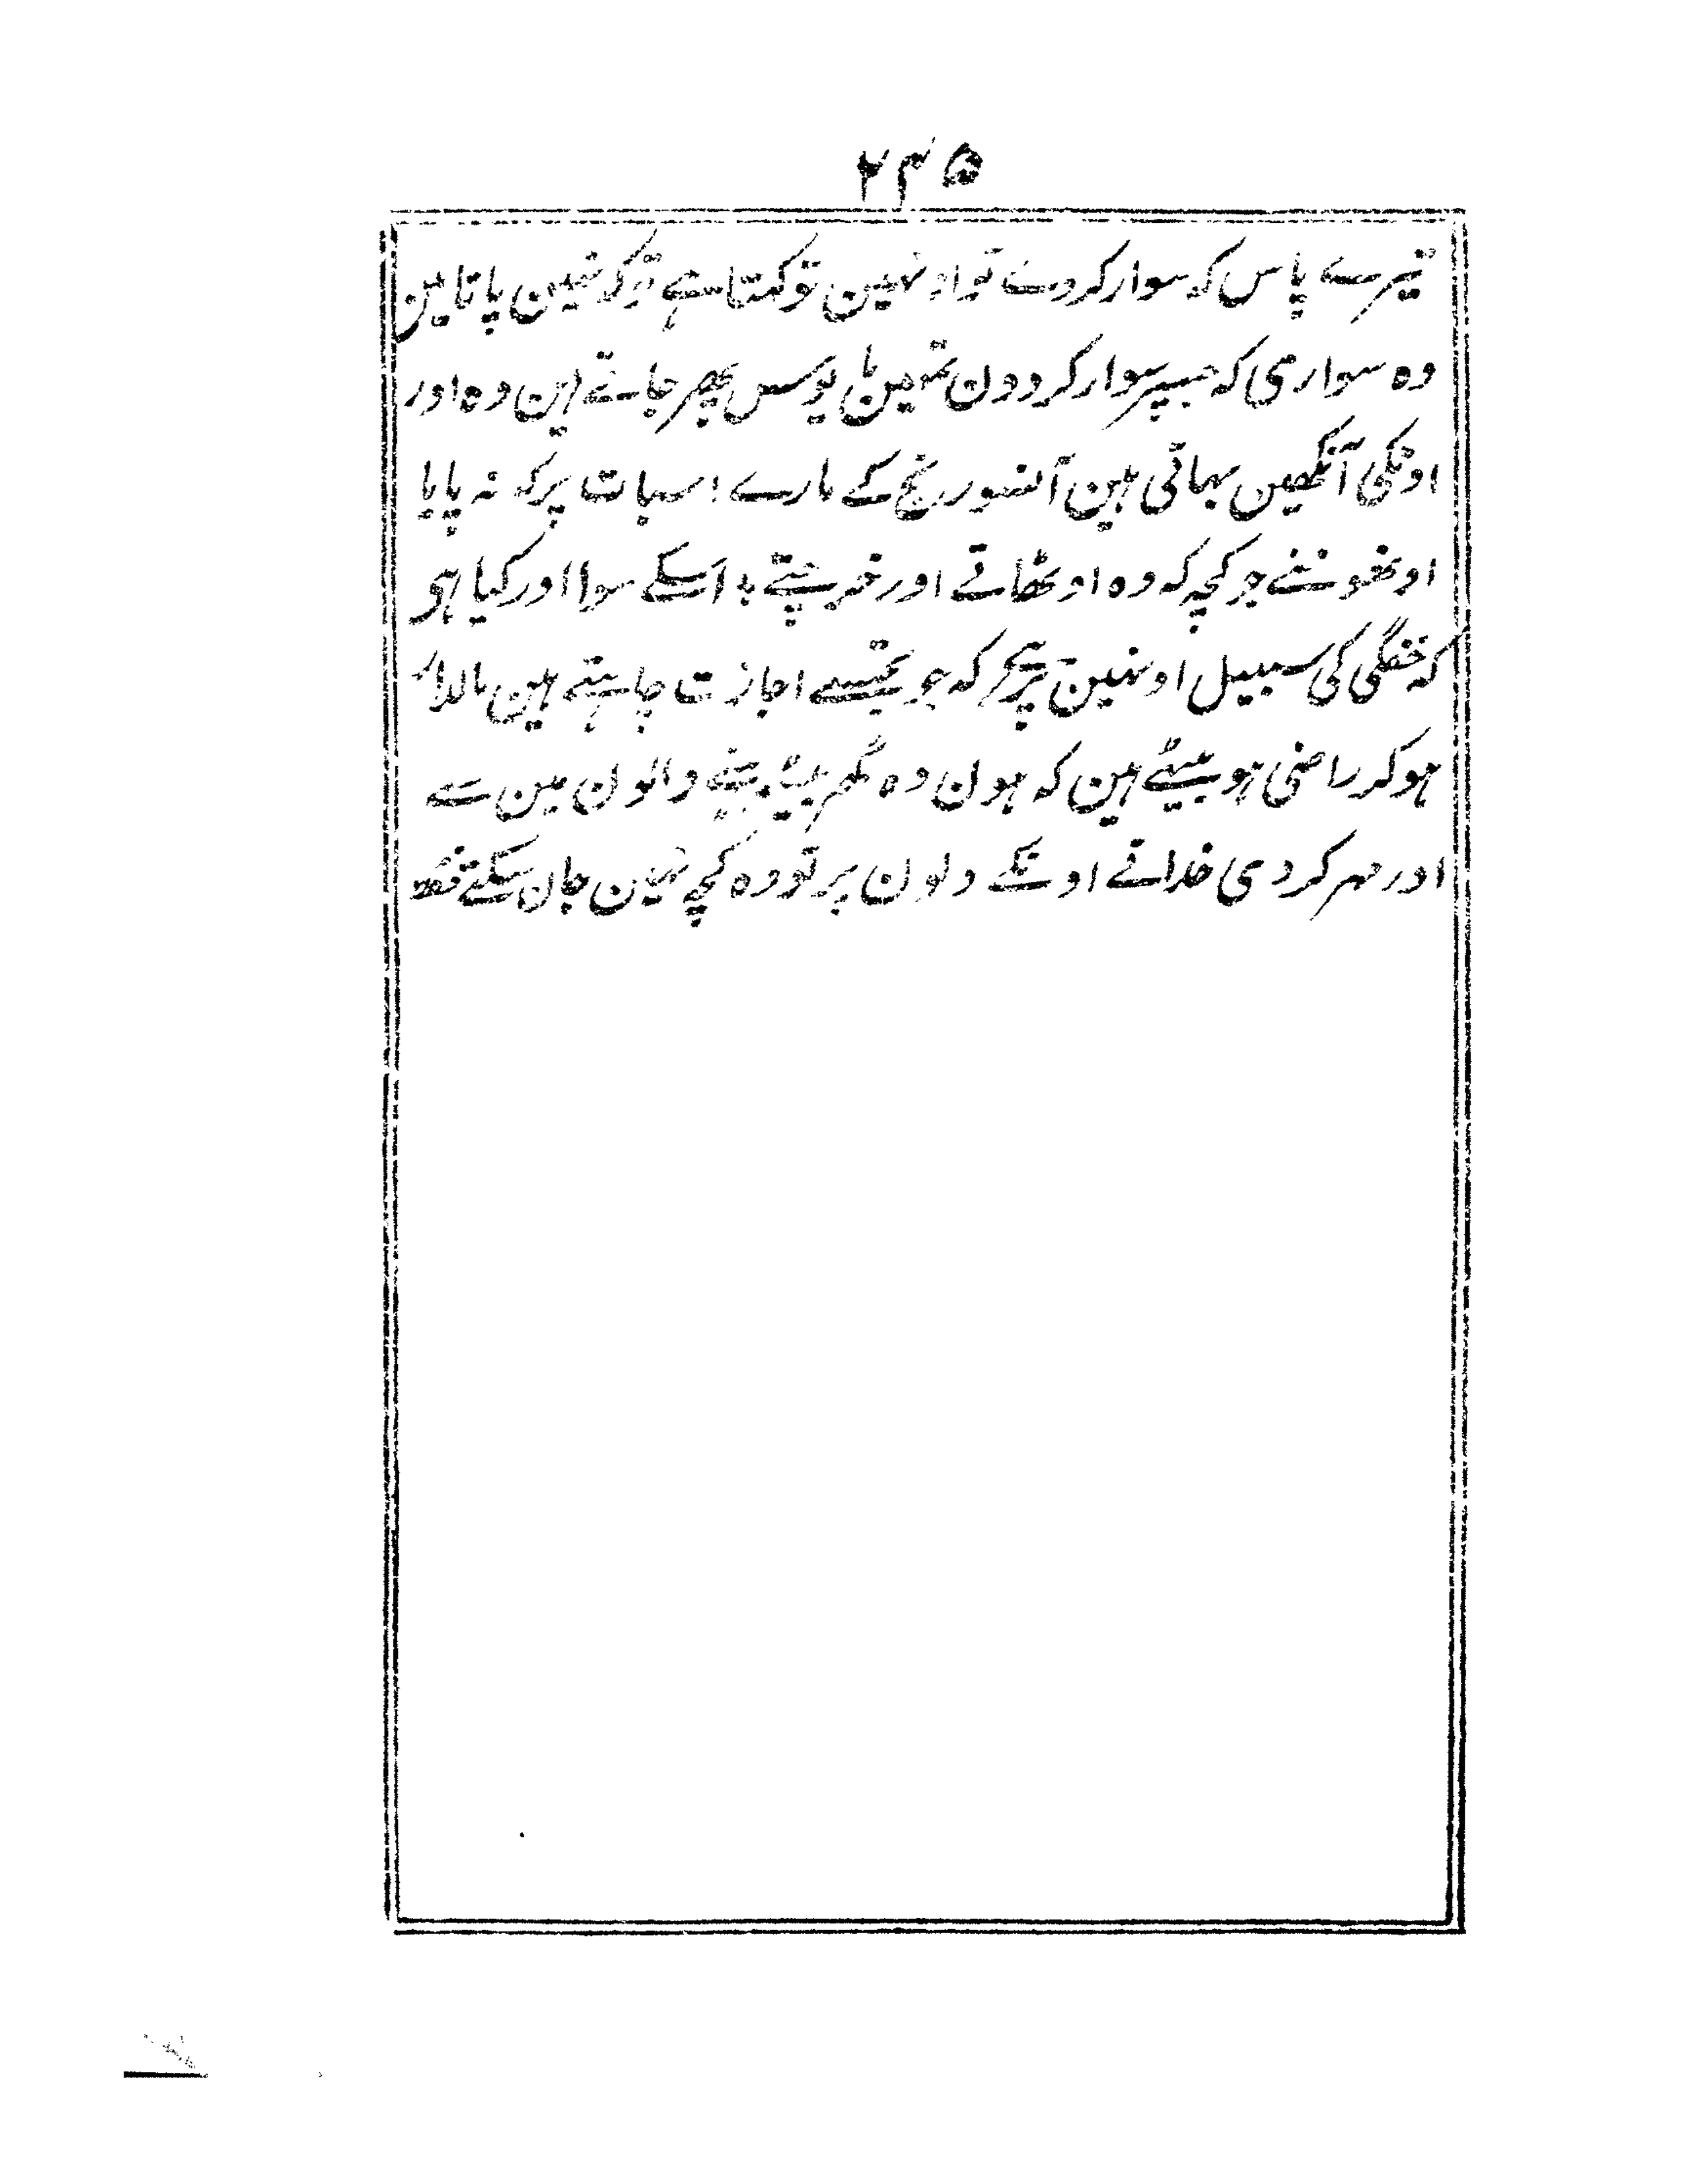 ۲۴۵
تیرے پاس کہ سوار کر دے تو اونہین تو کہتا ہے تو کہ نہین پاتا مین
وہ سواری کہ جسپر سوار کر دون تمہین مایوس پھر جاتے ہین وہ اور
اونکی آنکھین بہاتی ہین آنسو رنج کے مارے اسبات پر کہ نہ پایا
اونھونے جو کچہ کہ وہ اوٹھاتے اور خرچتے ؛ اسکے سوا اور کیا ہی
کہ خفگی کی سبیل اونہین پر ہے کہ جو تجسے اجازت چاہتے ہین مالدار
ہو کر راضی ہو بیٹھے ہین کہ ہون وہ گھر بیٹھنے والون مین سے
اور مہر کر دی خدانے اونکے دلون پر تو وہ کچہ نہین جان سکتے فقط